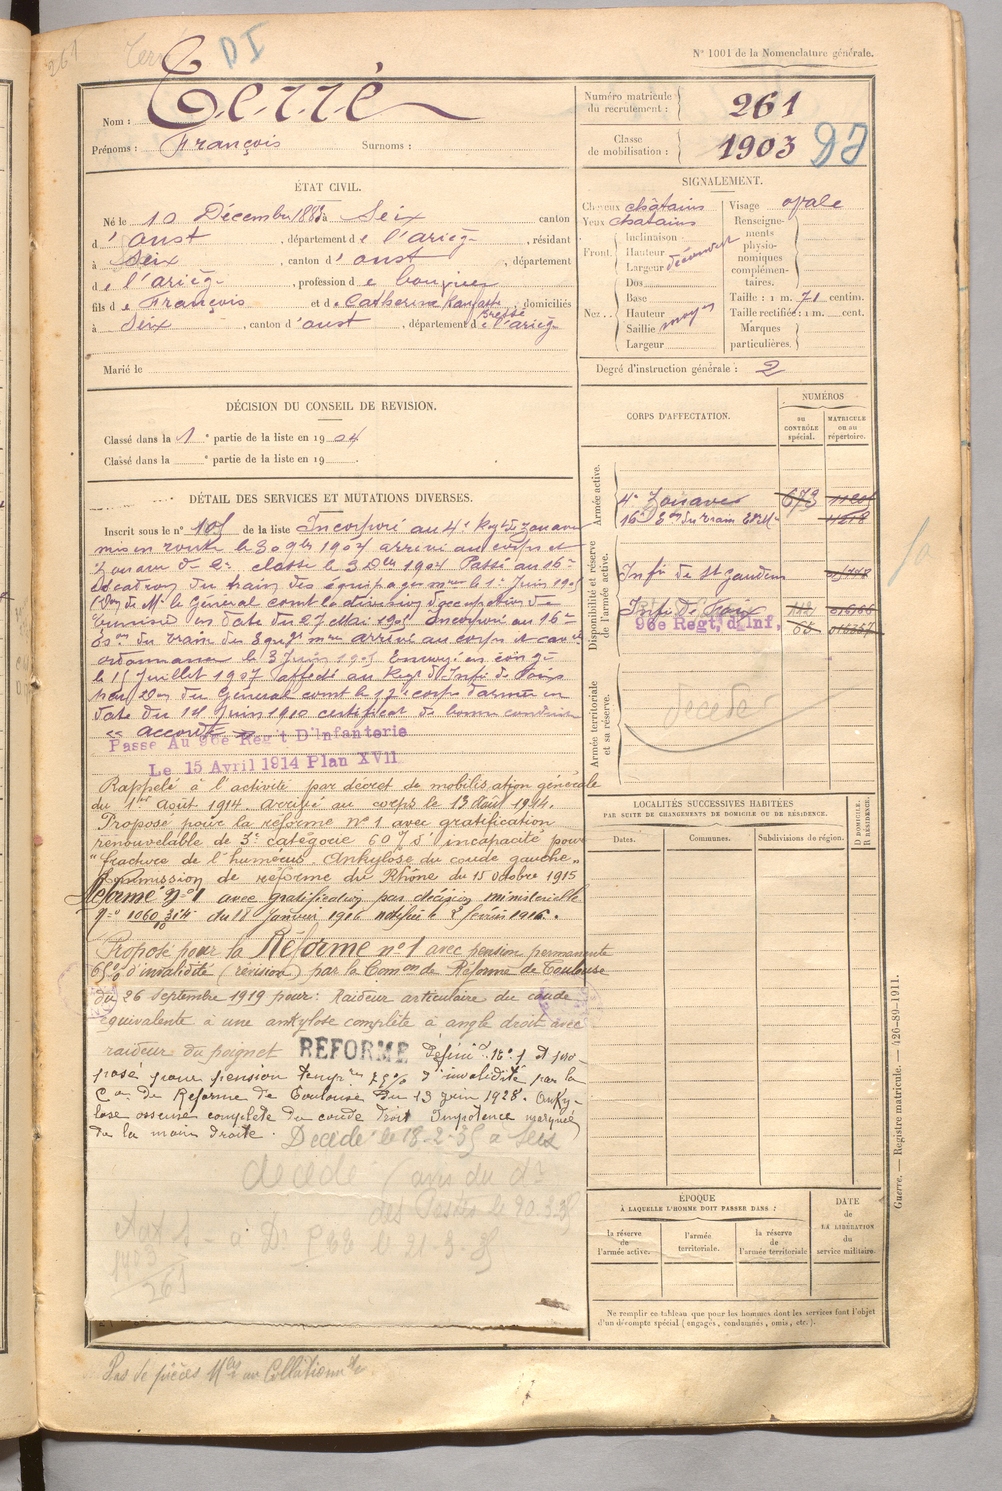 261
Terré
DI
N° 1001 de la Nomenclature générale.
Nom : Terré
Prénoms : François Surnoms :
Numéro matricule du recrutement : 261
Classe de mobilisation : 1903
ÉTAT CIVIL.
Né le 10 Décembre 1883 à Seix canton
d'oust, département de l'arièg-, résidant
à Seix, canton d'oust, département
de l'arièg-, profession de
fils de François et de Catherine, domiciliés
à Seix, canton d'oust, département de l'arièg
Marié le
SIGNALEMENT.
Cheveux châtains
Yeux chatains
Front. Inclinaison
Hauteur
Largeur
Nez. Dos
Base
Hauteur
Saillie moyen
Largeur
Visage ovale
Renseignements physionomiques complémentaires.
Taille : 1 m. 71 centim.
Taille rectifiée : 1 m. cent.
Marques particulières.
Degré d'instruction générale : 2
DÉCISION DU CONSEIL DE REVISION.
Classé dans la 1e partie de la liste en 1904
Classé dans la e partie de la liste en 19
CORPS D'AFFECTATION.
NUMÉROS
au CONTRÔLE spécial.
MATRICULE ou au répertoire.
Armée active.
4e Zouaves 673
16e Eon du train
Disponibilité et réserve de l'armée active.
Infie de St Gaudens
Infie De Foix
96e Regt. d'Inf. 65
Armée territoriale et sa réserve.
décédé
DÉTAIL DES SERVICES ET MUTATIONS DIVERSES.
Inscrit sous le n° 105 de la liste Incorporé au 4e Regt de Zouaves
mis en route le 30 9bre 1904 arrivé au corps et
Zouave de 2e classe le 3 Dbre 1904 Passé au 16e
Escadron du train des équipages mre le 1er Juin 1905
(Don de Mr le Général comt la division d'occupation de
Tunisie en date du 27 Mai 1905 Incorporé au 16e
Eon du train des Equges mres arrivé au corps et cavr
ordonnance le 3 Juin 1905 Envoyé en congé
le 15 Juillet 1907 affecté au Regt d'Infie de Foix
par Don du Général comt le 17e corps d'armée en
date du 14 Juin 1910 certificat de bonne conduite
"accordé"
Passé Au 96e Reg't D'Infanterie
Le 15 Avril 1914 Plan XVII
Rappelé à l'activité par décret de mobilisation générale
du 1er Août 1914. arrivé au corps le 13 Août 1914.
Proposé pour la réforme n° 1 avec gratification
renouvelable de 5e catégorie 60% d'incapacité pour
"fracture de l'humérus. Ankylose du coude gauche"
Commission de réforme du Rhône du 15 octobre 1915
Réformé n° 1 avec gratification par décision ministérielle
du 18 Janvier 1916 notifiée le février 1916.
Proposé pour la Réforme n° 1 avec pension permanente
65% d'invalidité (révision) par la Comon de Réforme de Toulouse
du 26 Septembre 1919 pour : Raideur articulaire du coude
équivalente à une ankylose complète à angle droit avec
raideur du poignet RÉFORMÉ Définif. N° 1 et pro-
posé pour pension tempre 75% d'invalidité par la
Con de Réforme de Toulouse du 13 juin 1928. Anky-
lose osseuse complète du coude droit Impotence marquée
de la main droite. Décédé le 18-2-35 à Seix
décédé (avis du dr
des Postes le 20.3.35
1903
261
LOCALITÉS SUCCESSIVES HABITÉES
PAR SUITE DE CHANGEMENTS DE DOMICILE OU DE RÉSIDENCE.
Dates. Communes. Subdivisions de région. D DOMICILE. R RÉSIDENCE.
ÉPOQUE
À LAQUELLE L'HOMME DOIT PASSER DANS :
la réserve de l'armée active. l'armée territoriale. la réserve de l'armée territoriale
DATE de LA LIBÉRATION du service militaire.
Ne remplir ce tableau que pour les hommes dont les services font l'objet
d'un décompte spécial (engagés, condamnés, omis, etc.).
Guerre. — Registre matricule. — 426-89-1911.
Pas de pièces